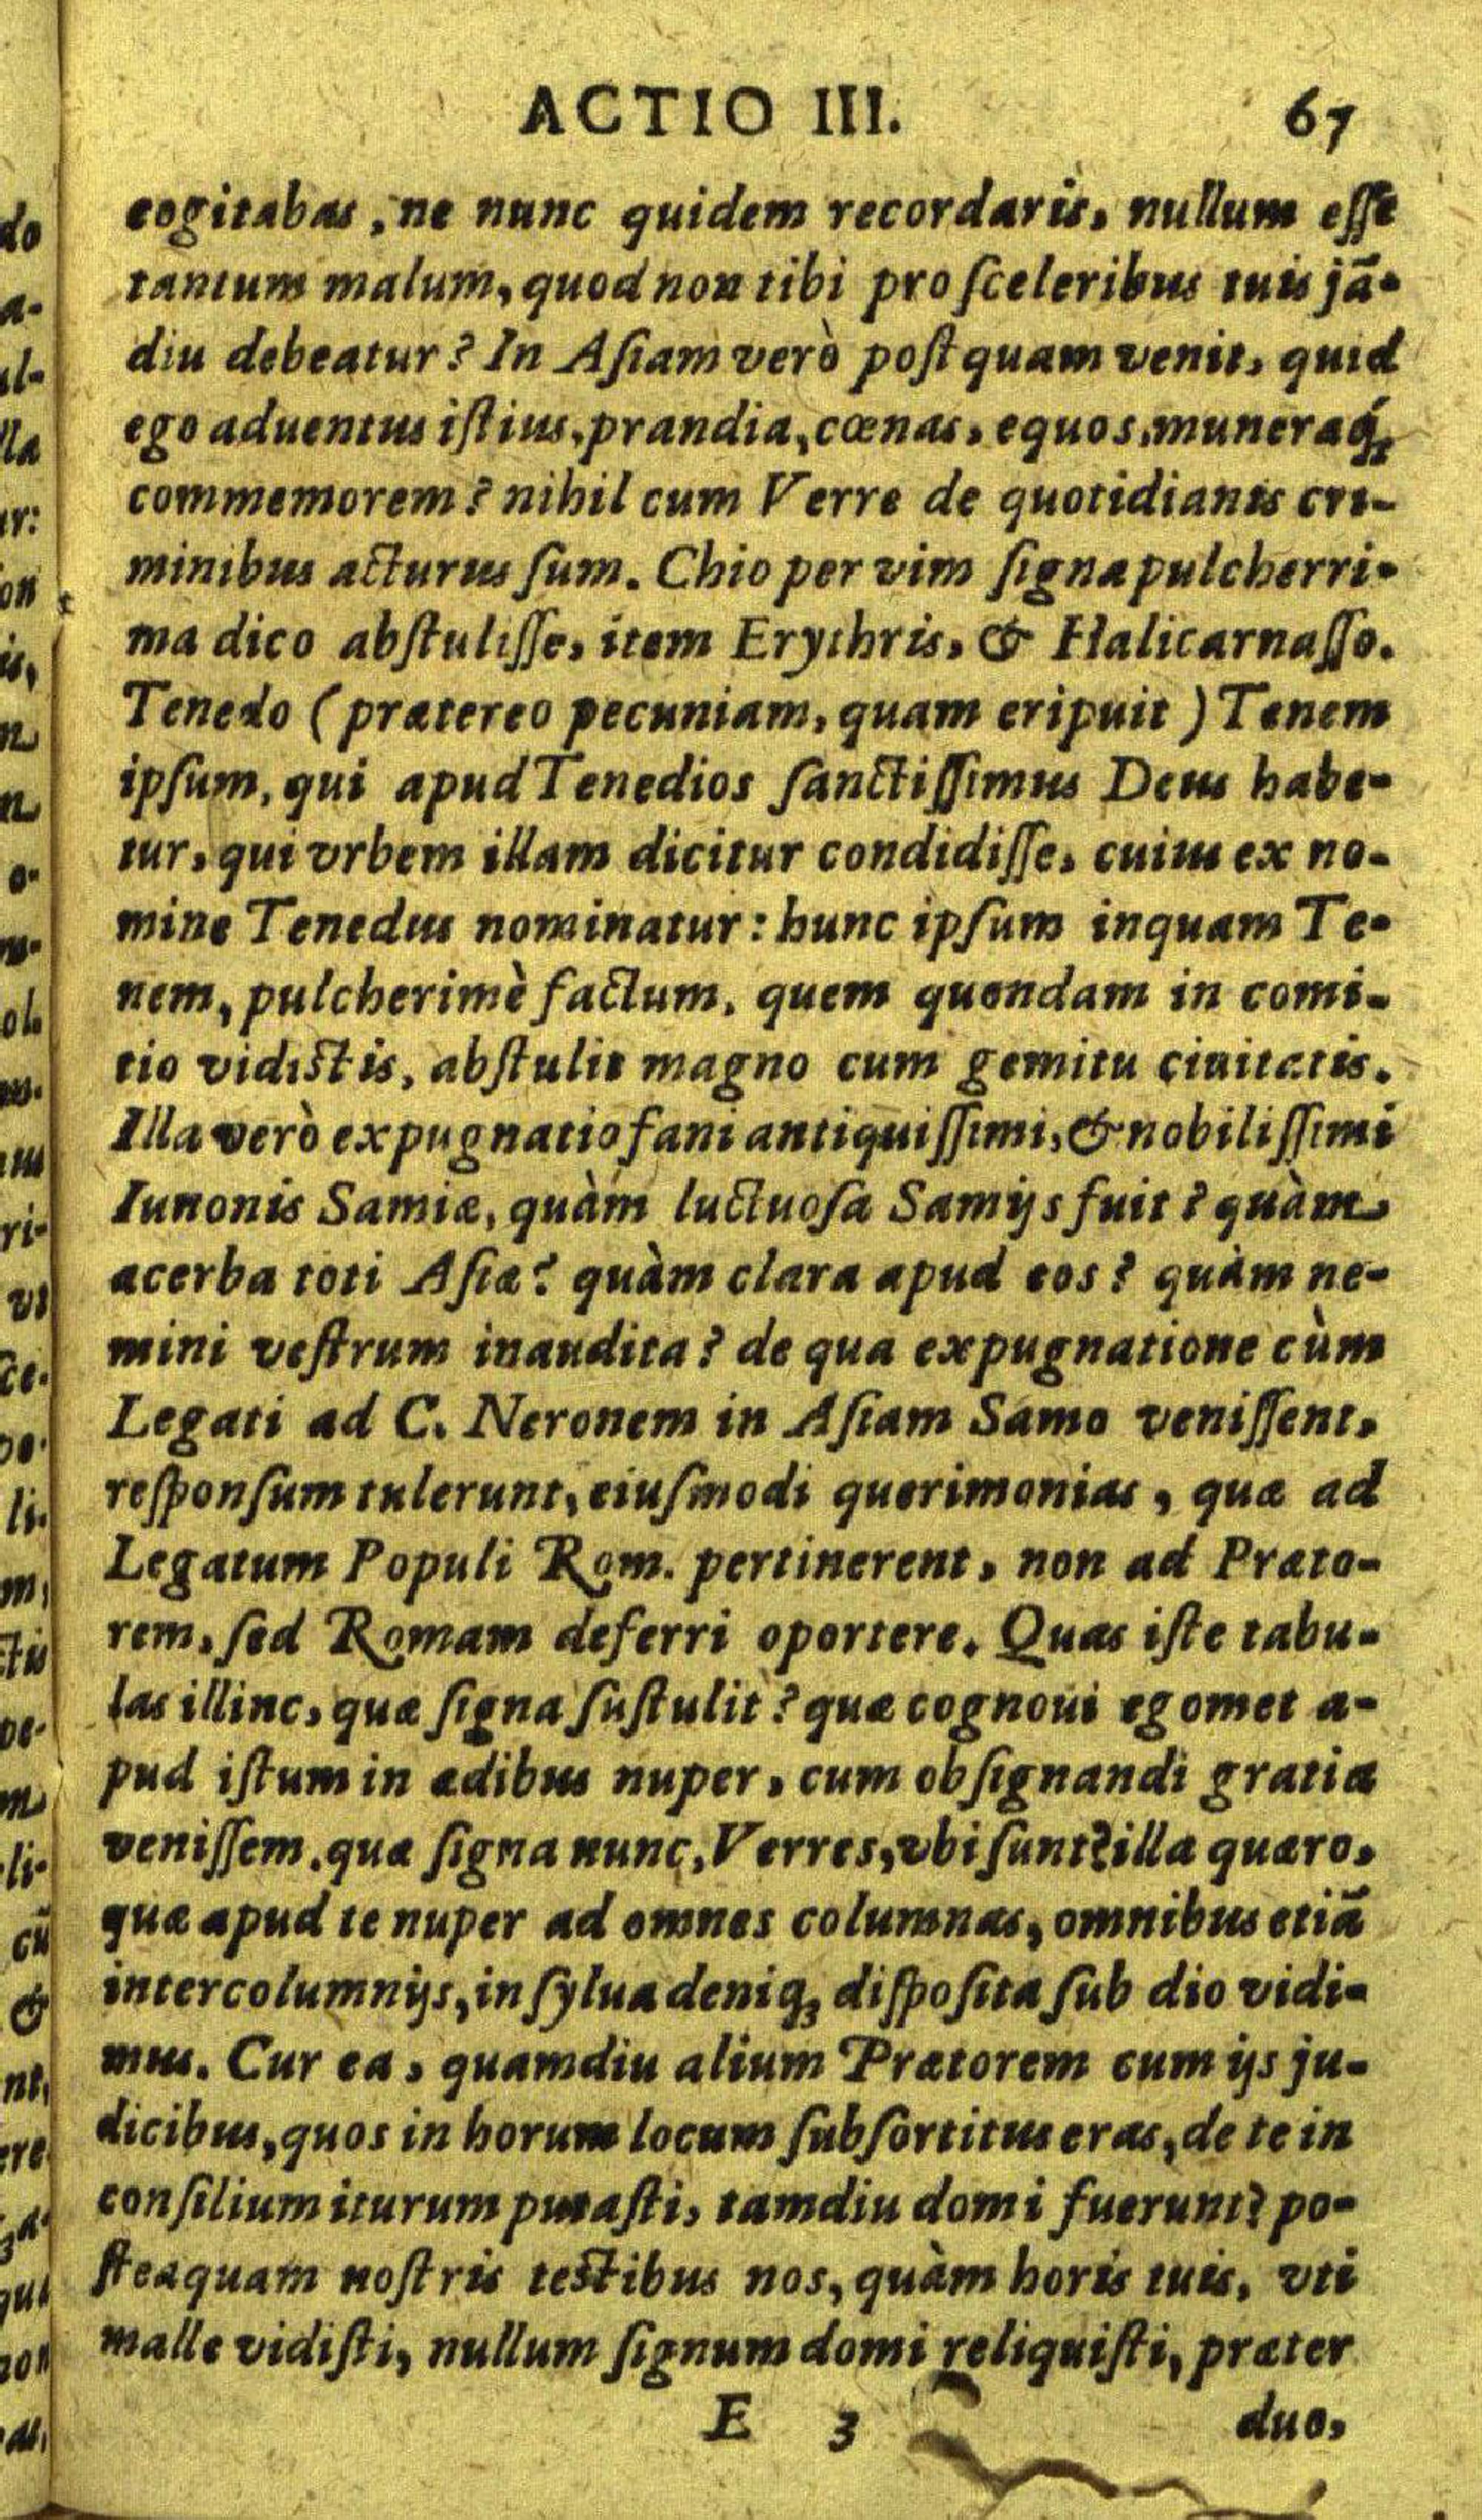 ACTIO III. 67
cogitabas, ne nunc quidem recordaris, nullum eſſe
tantum malum, quod non tibi pro ſceleribus tuis jã-
diu debeatur? In Aſiam verò poſtquam venit, quid
ego aduentus iſtius, prandia, cœnas, equos, muneraq́;
commemorem? nihil cum Verre de quotidianis cri-
minibus acturus ſum. Chio per vim ſigna pulcherri-
ma dico abſtuliſſe, item Erythris, & Halicarnaſſo.
Tenedo (prætereo pecuniam, quam eripuit) Tenem
ipſum, qui apud Tenedios ſanctiſſimus Deus habe-
tur, qui vrbem illam dicitur condidiſſe, cuius ex no-
mine Tenedus nominatur: hunc ipſum inquam Te-
nem, pulcherimè factum, quem quondam in comi-
tio vidistis, abſtulit magno cum gemitu ciuitatis.
Illa verò expugnatio fani antiquiſſimi, & nobiliſſimi
Iunonis Samiæ, quàm luctuoſa Samijs fuit? quàm
acerba toti Aſiæ? quàm clara apud eos? quàm ne-
mini veſtrum inaudita? de qua expugnatione cùm
Legati ad C. Neronem in Aſiam Samo veniſſent,
reſponſum tulerunt, eiuſmodi querimonias, quæ ad
Legatum Populi Rom. pertinerent, non ad Præto-
rem, ſed Romam deferri oportere. Quas iſte tabu-
las illinc, quæ ſigna ſuſtulit? quæ cognoui egomet a-
pud iſtum in ædibus nuper, cum obſignandi gratia
veniſſem. quæ ſigna nunc, Verres, vbi ſunt? illa quæro,
quæ apud te nuper ad omnes columnas, omnibus etiã
intercolumnijs, in ſylua deniq; diſpoſita ſub dio vidi-
mus. Cur ea, quamdiu alium Prætorem cum ijs ju-
dicibus, quos in horum locum ſubſortitus eras, de te in
conſilium iturum putaſti, tamdiu domi fuerunt? po-
ſteaquam noſtris testibus nos, quàm horis tuis, vti
malle vidiſti, nullum ſignum domi reliquiſti, præter
E 3 duo,